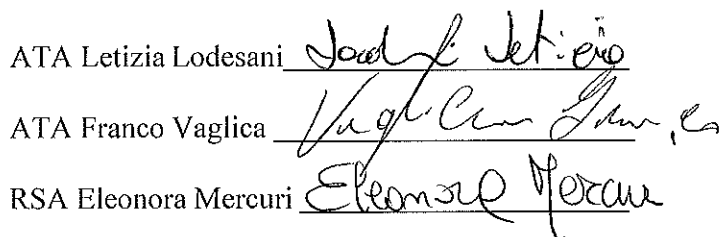 ATA Letizia Lodesani Lodesani Letizia
ATA Franco Vaglica Vaglica Franco
RSA Eleonora Mercuri Eleonora Mercuri